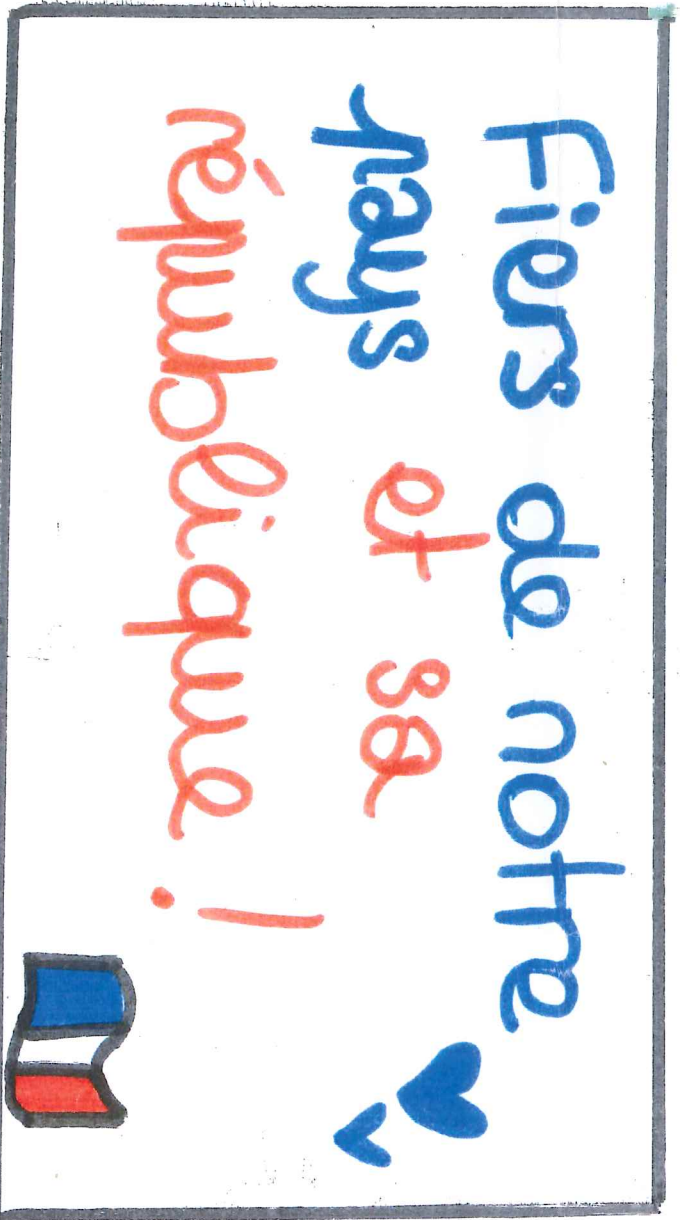 Fiers de notre
pays et sa
république !